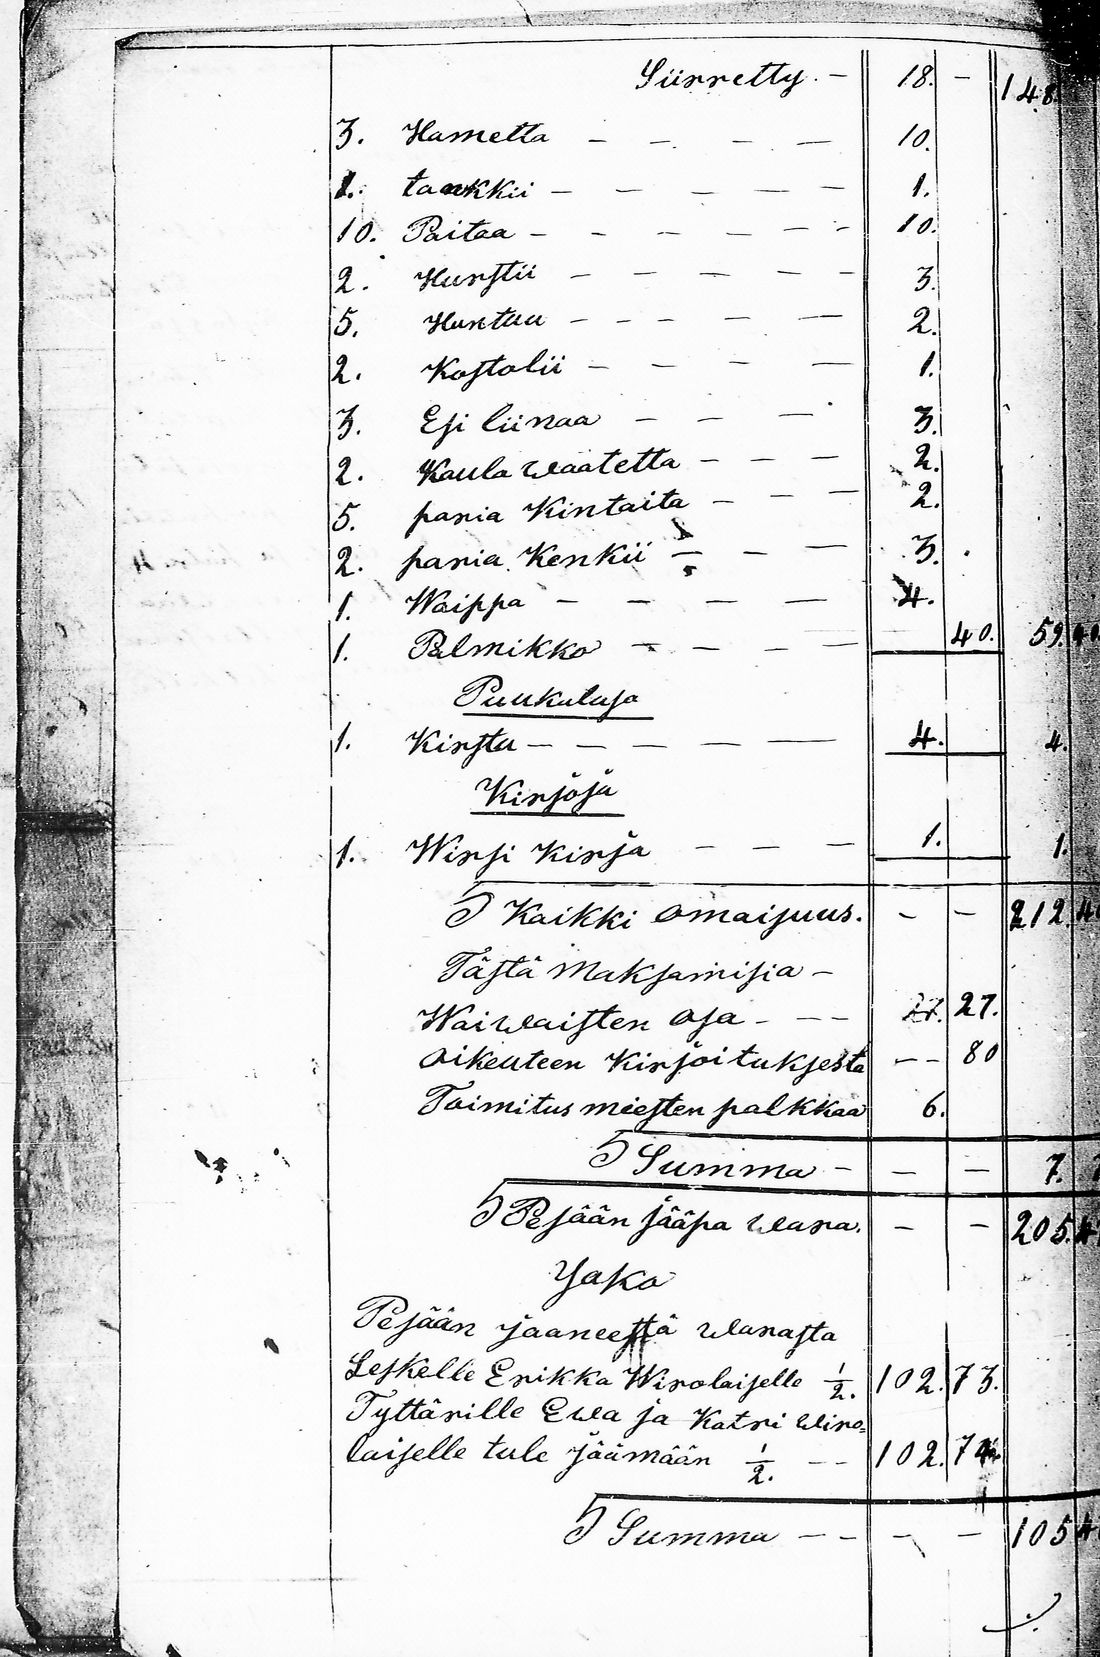 Siirretty. - 18. - 148.
3. Hametta - - - - 10.
1. takkii - - - - - - 1.
10. Paitaa - - - - - - 10.
2. Hurstii - - - - - 3.
5. Huntuu - - - - - 2.
2. Kostolii - - - - 1.
3. Esi liinaa - - - 3.
2. Kaula waatetta - - - 2.
5. paria Kintaita - - - 2.
2. paria Kenkii - - - 3.
1. Waippa - - - - 4.
1. Palmikko - - - - 40. 59. 40
Puukaluja
1. Kirstu - - - - - 4. 4.
Kirjoja
1. Wirsi Kirja - - - 1. 1.
S Kaikki omaisuus. - - 212. 4
Tästä Maksamisia -
Waiwaisten osa - - - 27. 27.
oikeuteen Kirjoituksesta - - 80
Toimitus miesten palkkaa 6.
S Summa - - - 7. 7
S Pesään jääpä wara. - - 205. 4
Jako
Pesään jaaneesta warasta
Leskelle Erikka Wirolaiselle 1/2. 102. 73.
Tyttärille Ewa ja Katri Wiro=
laiselle tule jäämään 1/2. - - 102. 74.
S Summa - - - - 105 4